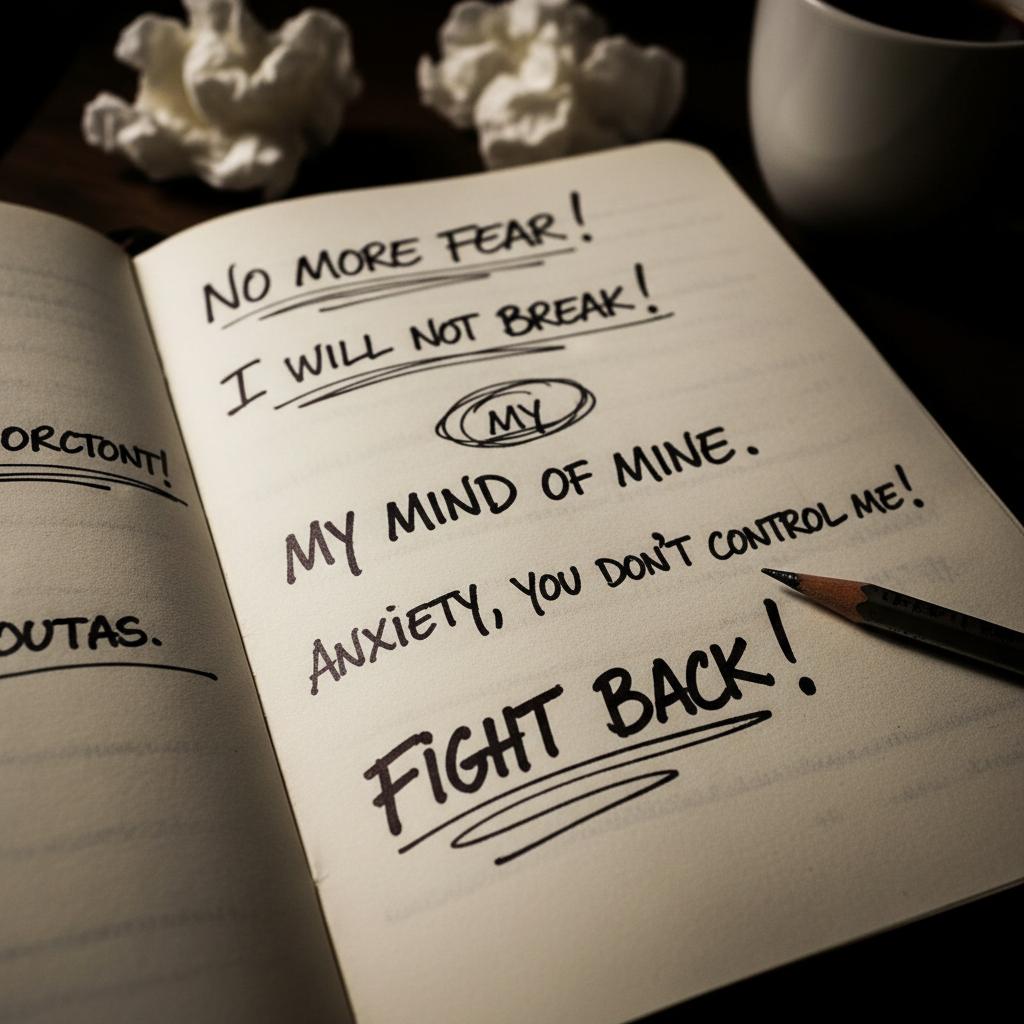 ORCTONT!
OUTAS.
NO MORE FEAR!
I WILL NOT BREAK!
MY
MY MIND OF MINE.
ANXIETY, YOU DON'T CONTROL ME!
FIGHT BACK!